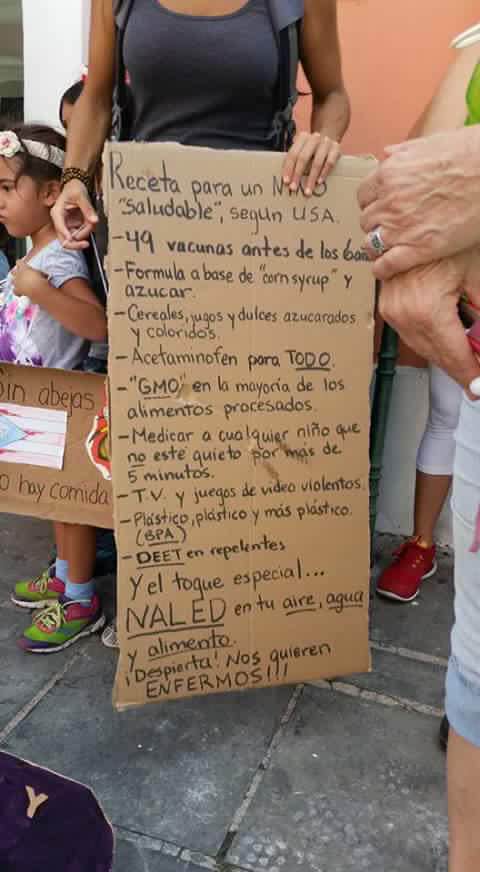 Receta para un NIÑO
"Saludable", según USA.
-49 vacunas antes de los 6
-Formula a base de "corn syrup" y
azucar.
-Cereales, jugos y dulces azucarados
y coloridos.
-Acetaminofen para TODO.
-"GMO" en la mayoría de los
alimentos procesados.
-Medicar a cualquier niño que
no esté quieto por más de
5 minutos.
-T.V. y juegos de video violentos.
-Plástico, plástico y más plástico.
(BPA)
-DEET en repelentes
Y el toque especial...
NALED en tu aire, agua
y alimento.
¡Despierta! Nos quieren
ENFERMOS!!!
Sin abejas
no hay comida
Y